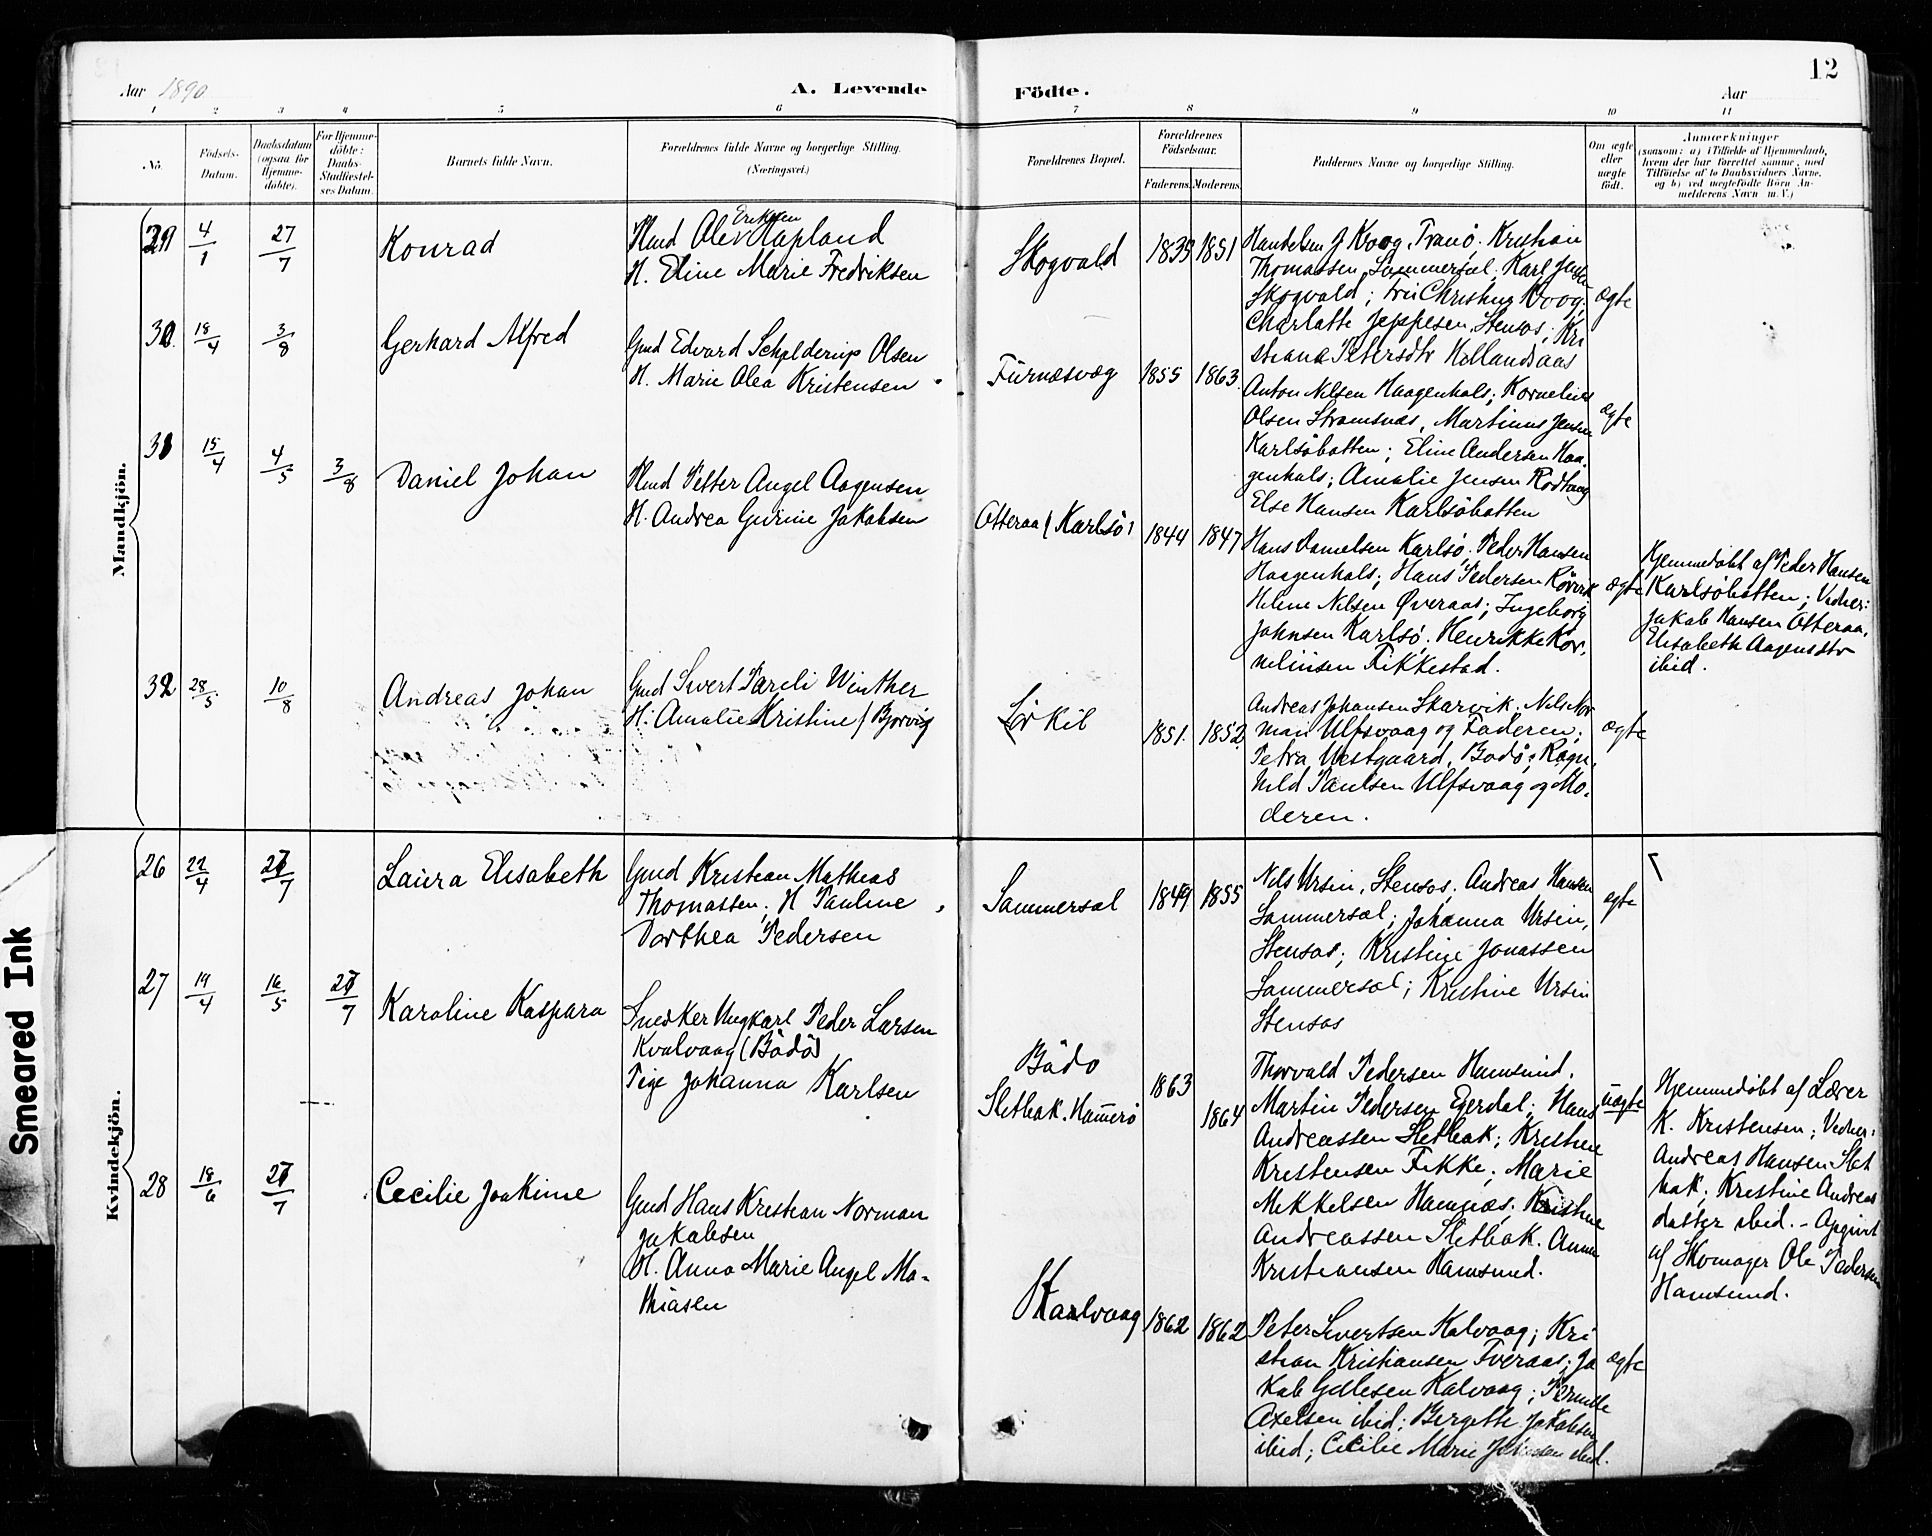 12
Aar 1890.
A. Levende
Födte.
Aar
1 2 3 4 5 6 7 8 9 10 11
No.
Födsels-
Datum.
Daabsdatum
(ogsaa for
Hjemme-
döbte).
For Hjemme-
döbte:
Daabs-
Stadfæstel-
ses Datum.
Barnets fulde Navn.
Forældrenes fulde Navne og borgerlige Stilling.
(Næringsvei.)
Forældrenes Bopæl.
Forældrenes
Födselsaar.
Faderens.
Moderens.
Faddernes Navne og borgerlige Stilling.
Om ægte
eller
uægte
födt.
Anmærkninger
(saasom: a) i Tilfælde af Hjemmedaab,
hvem der har forrettet samme, med
Tilföielse af to Daabsvidners Navne,
og b) ved uægtefödte Börn An-
melderens Navn m. V.)
Mandkjön.
29 4/1 27/7 Konrad
Eriksen
Hmd Ole Hapland
H. Eline Marie Fredriksen
Skogvald 1839 1851
Handelsm J Kroog, Tranö. Kristian
Thomassen Sammersæl. Karl Jensen
Skogvald; Fru Christine Kroog,
Charlotte Jeppesen, Stensos; Kri
stiane Petersdtr Hellandsaas
ægte
30 18/4 3/8 Gerhard Alfred
Gmd Edvard Schelderup Olsen
H. Marie Olea Kristensen
Furnæsvæg 1855 1863
Anton Nilsen Haagenhals; Kornelius
Olsen Stromsnæs, Martinus Jensen
Karlsöbatten; Eline Andersen Haa-
genhals; Amalie Jensen Rodhaug
Else Hansen Karlsöbotten
ægte
31 15/4 4/5 3/8 Daniel Johan
Hmd Petter Angel Aagensen
H. Andrea Gurine Jakobsen
Otteraa (Karlsö) 1844 1847
Hans Danielsen Karlsö. Peder Hansen
Haagenhals; Hans Pedersen Rörvik
Helene Nilsen Överaas; Ingeborg
Johnsen Karlsö. Henrikke Kor-
neliusen Fikkestad.
ægte
Hjemmedöbt af Peder Hansen
Karlsöbotten; Vidner:
Jakob Hansen Otteraa,
Elisabeth Aagensdtr
ibid.
32 28/5 10/8 Andreas Johan
Gmd Sivert Pareli Winther
H. Amalie Kristine Bjorvig
Sörkil 1851. 1852
Andreas Johansen Skarvik; Nils Nor
man Ulfsvaag og Faderen;
Petra Vestgaard, Bodö; Ragn-
hild Paulsen Ulfsvaag og Mo-
deren.
ægte
Kvindekjön.
26 22/4 27/7 Laura Elisabeth
Gmd Kristian Mathias
Thomassen; H Pauline
Dorthea Pedersen
Sammersæl 1849 1855
Nils Ursin, Stensos. Andreas Hansen
Sammersæl; Johanna Ursin,
Stensos; Kristine Jonassen
Sammersæl; Kristine Ursin
Stensos
ægte
27 19/4 16/5 27/7 Karoline Kaspara
Snedker Ungkarl Peder Larsen
Kvalvaag (Bodö)
Pige Johanna Karlsen
Bodö
Sletbak. Hamerö
1863
1864
Thorvald Pedersen Hamsund.
Martin Pedersen Egerdal; Hans
Andreassen Sletbak; Kristine
Kristensen Fikke; Marie
Mikkelsen Hamnæs; Kristine
Andreassen Sletbak. Anne
Kristiansen Hamsund.
uægte
Hjemmedöbt af Lærer
K. Kristensen; Vidner:
Andreas Hansen Slet
bak; Kristine Andreas
datter ibid. - Apgivet
af Skomager Ole Pedersen
Hamsund.
28 18/6 27/7 Cecilie Joakime
Gmd Hans Kristian Norman
Jakobsen
H. Anna Marie Angel Ma-
thiasen
Karlvaag 1862 1862
Peter Sivertsen Kalvaag; Kri
stian Kristiansen Tveraas; Ja
kob Gellesen Kalvaag; Pernille
Axelsen ibid; Bergette Jakobsen
ibid; Cecilie Marie Johnsen ibid.
ægte
Smeared Ink